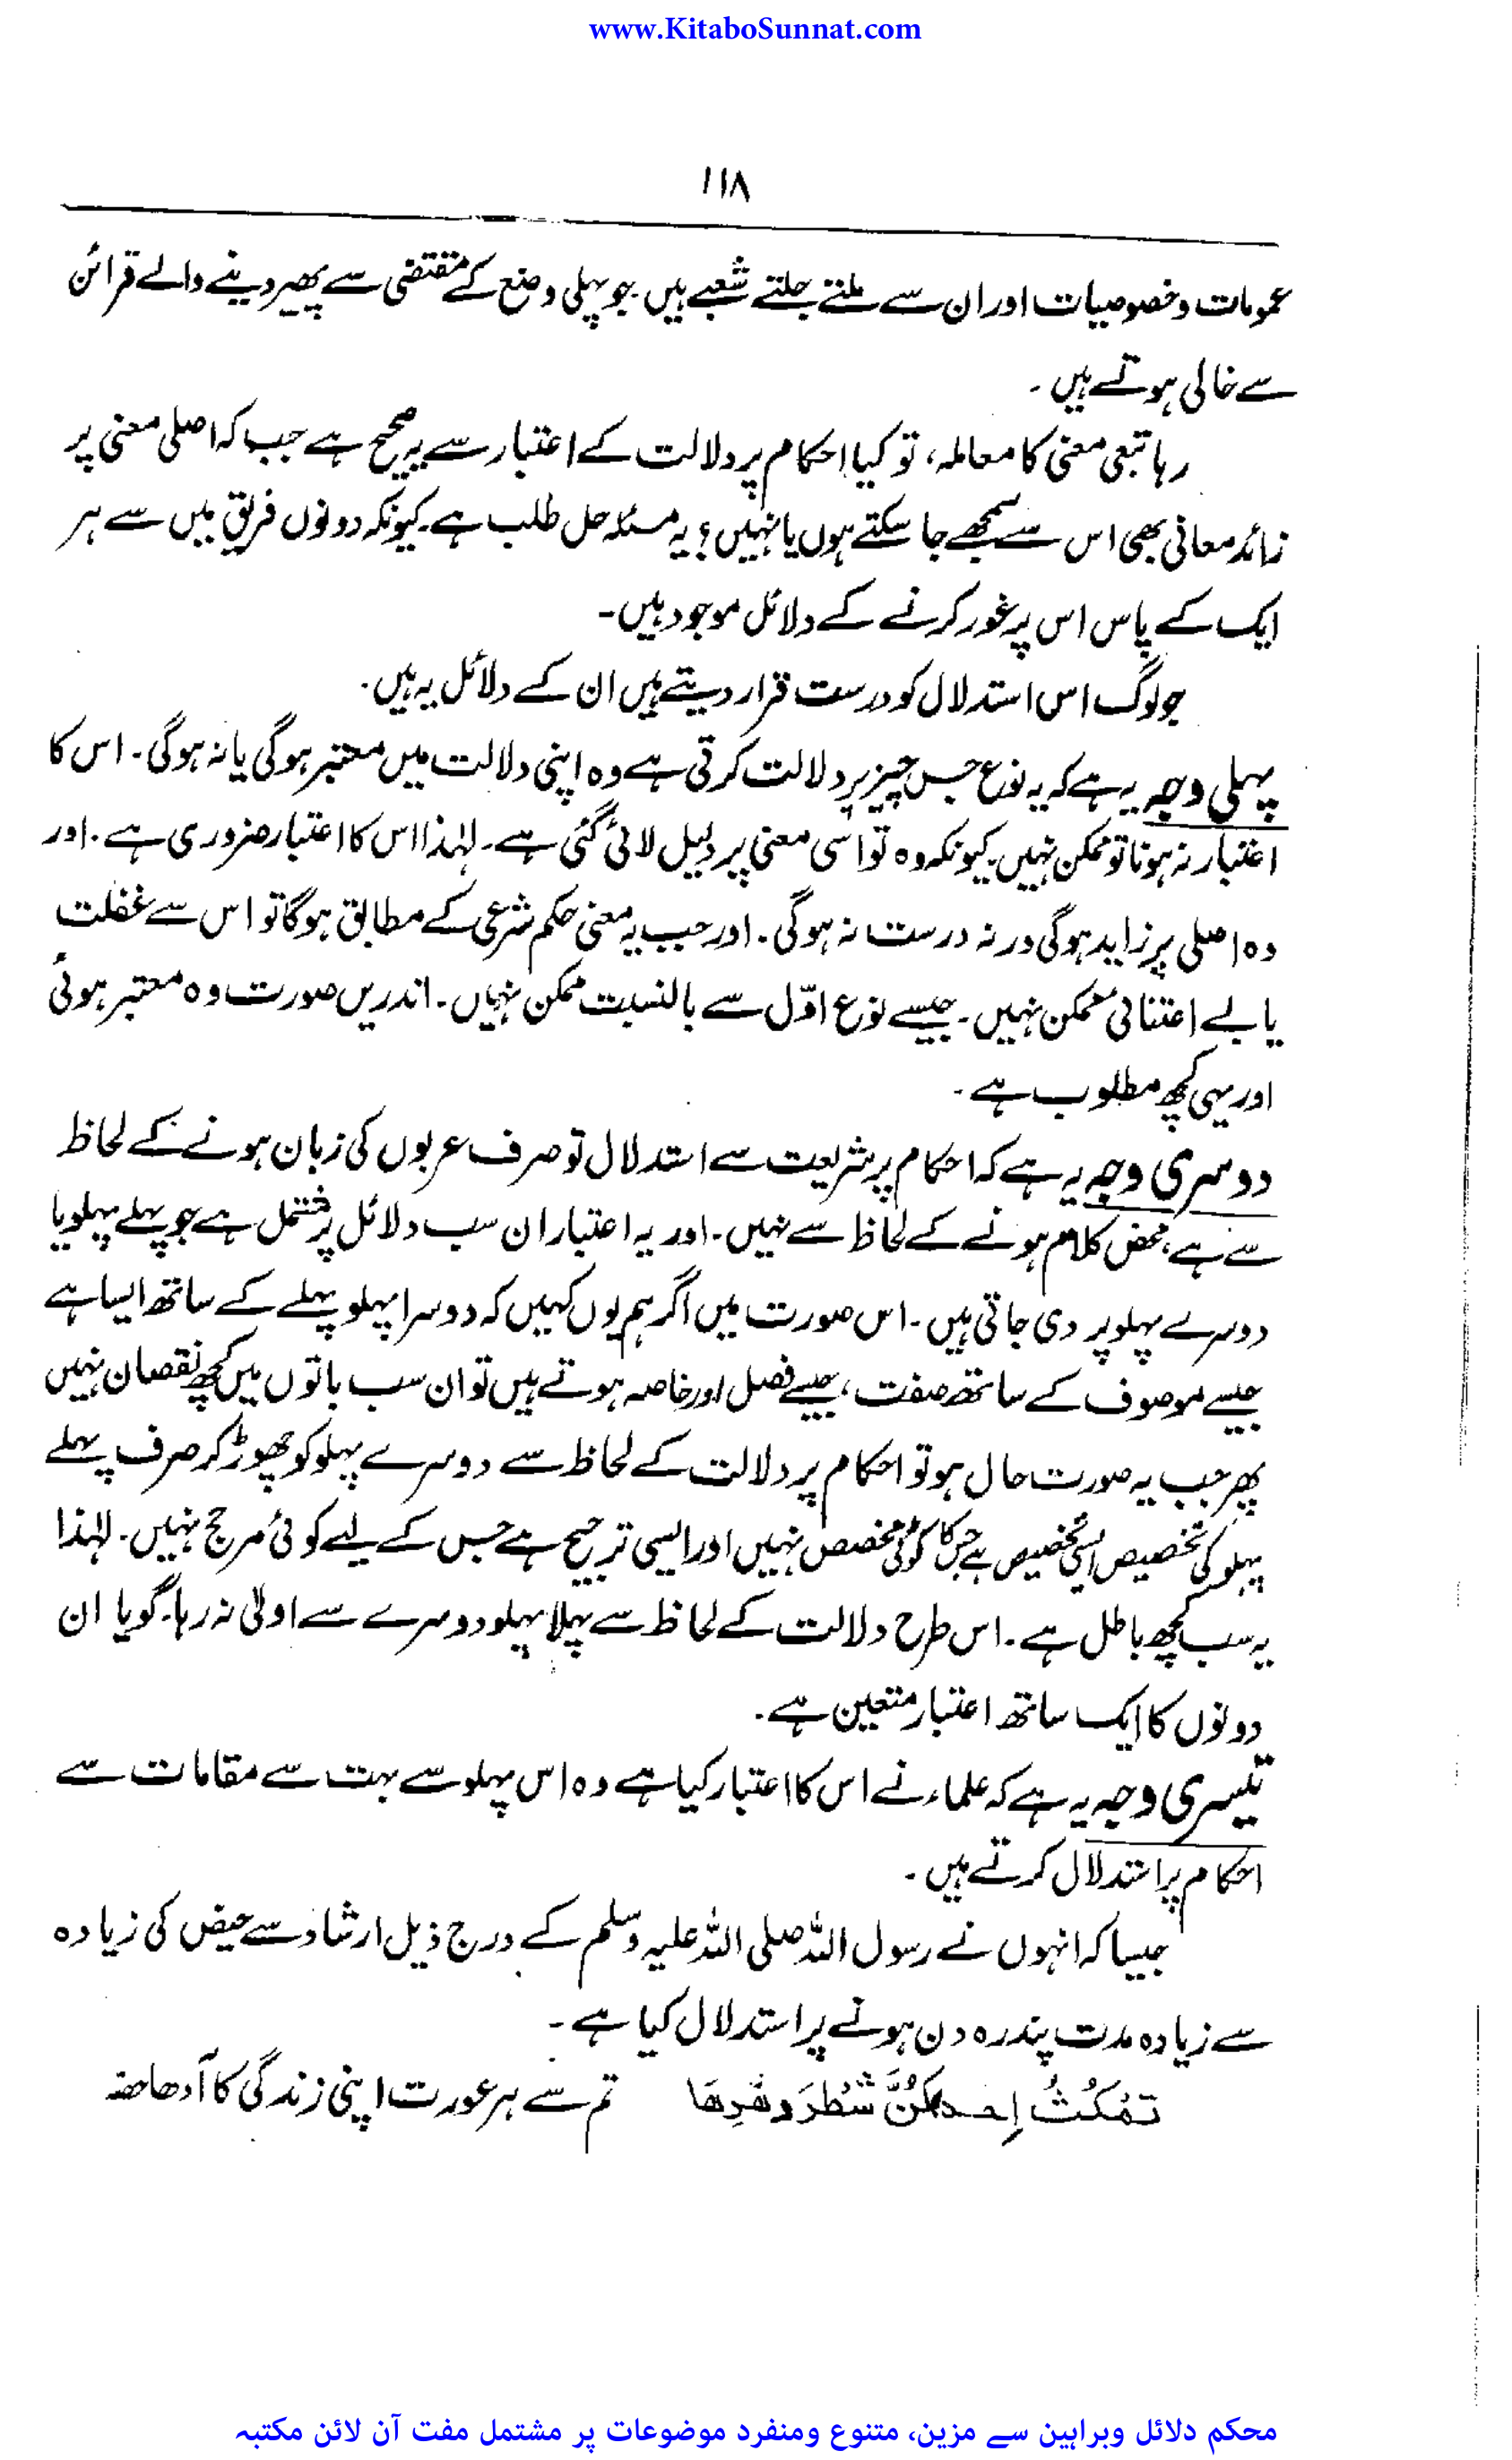 www.KitaboSunnat.com
۱۱۸
عمومات و خصوصیات اور ان سے ملتے جلتے شعبے ہیں۔ جو پہلی وضع کے مقتضی سے پھیر دینے والے قرائن
سے خالی ہوتے ہیں۔
رہا تبعی معنی کا معاملہ، تو کیا احکام پر دلالت کے اعتبار سے یہ صحیح ہے جب کہ اصلی معنی پر
زائد معانی بھی اس سے سمجھے جا سکتے ہوں یا نہیں؟ یہ مسئلہ حل طلب ہے۔ کیونکہ دونوں فریق میں سے ہر
ایک کے پاس اس پر غور کرنے کے دلائل موجود ہیں۔
جو لوگ اس استدلال کو درست قرار دیتے ہیں ان کے دلائل یہ ہیں۔
پہلی وجہ یہ ہے کہ یہ نوع جس چیز پر دلالت کرتی ہے وہ اپنی دلالت میں معتبر ہوگی یا نہ ہوگی۔ اس کا
اعتبار نہ ہونا تو ممکن نہیں۔ کیونکہ وہ تو اسی معنی پر دلیل لائی گئی ہے۔ لہٰذا اس کا اعتبار ضروری ہے۔ اور
وہ اصلی پر زاید ہوگی ورنہ درست نہ ہوگی۔ اور جب یہ معنی حکم شرعی کے مطابق ہوگا تو اس سے غفلت
یا بے اعتنائی ممکن نہیں۔ جیسے نوع اوّل سے بالنسبت ممکن نہیں۔ اندریں صورت وہ معتبر ہوئی
اور یہی کچھ مطلوب ہے۔
دوسری وجہ یہ ہے کہ احکام پر شریعت سے استدلال تو صرف عربوں کی زبان ہونے کے لحاظ
سے ہے، محض کلام ہونے کے لحاظ سے نہیں۔ اور یہ اعتبار ان سب دلائل پر مشتمل ہے جو پہلے پہلو یا
دوسرے پہلو پر دی جاتی ہیں۔ اس صورت میں اگر ہم یوں کہیں کہ دوسرا پہلو پہلے کے ساتھ ایسا ہے
جیسے موصوف کے ساتھ صفت، جیسے فصل اور خاصہ ہوتے ہیں تو ان سب باتوں میں کچھ نقصان نہیں
پھر جب یہ صورت حال ہو تو احکام پر دلالت کے لحاظ سے دوسرے پہلو کو چھوڑ کر صرف پہلے
پہلو کی تخصیص ایسی تخصیص ہے جس کا کوئی مخصص نہیں اور ایسی ترجیح ہے جس کے لیے کوئی مرجح نہیں۔ لہٰذا
یہ سب کچھ باطل ہے۔ اس طرح دلالت کے لحاظ سے پہلا پہلو دوسرے سے اولیٰ نہ رہا۔ گویا ان
دونوں کا ایک ساتھ اعتبار متعین ہے۔
تیسری وجہ یہ ہے کہ علماء نے اس کا اعتبار کیا ہے وہ اس پہلو سے بہت سے مقامات سے
احکام پر استدلال کرتے ہیں۔
جیسا کہ انہوں نے رسول اللہ صلی اللہ علیہ وسلم کے درج ذیل ارشاد سے حیض کی زیادہ
سے زیادہ مدت پندرہ دن ہونے پر استدلال کیا ہے۔
تَمْكُثُ إِحدٰكُنَّ شَطْرَ دَهْرِهَا تم سے ہر عورت اپنی زندگی کا آدھا حصہ
محکم دلائل وبراہین سے مزین، متنوع ومنفرد موضوعات پر مشتمل مفت آن لائن مکتبہ